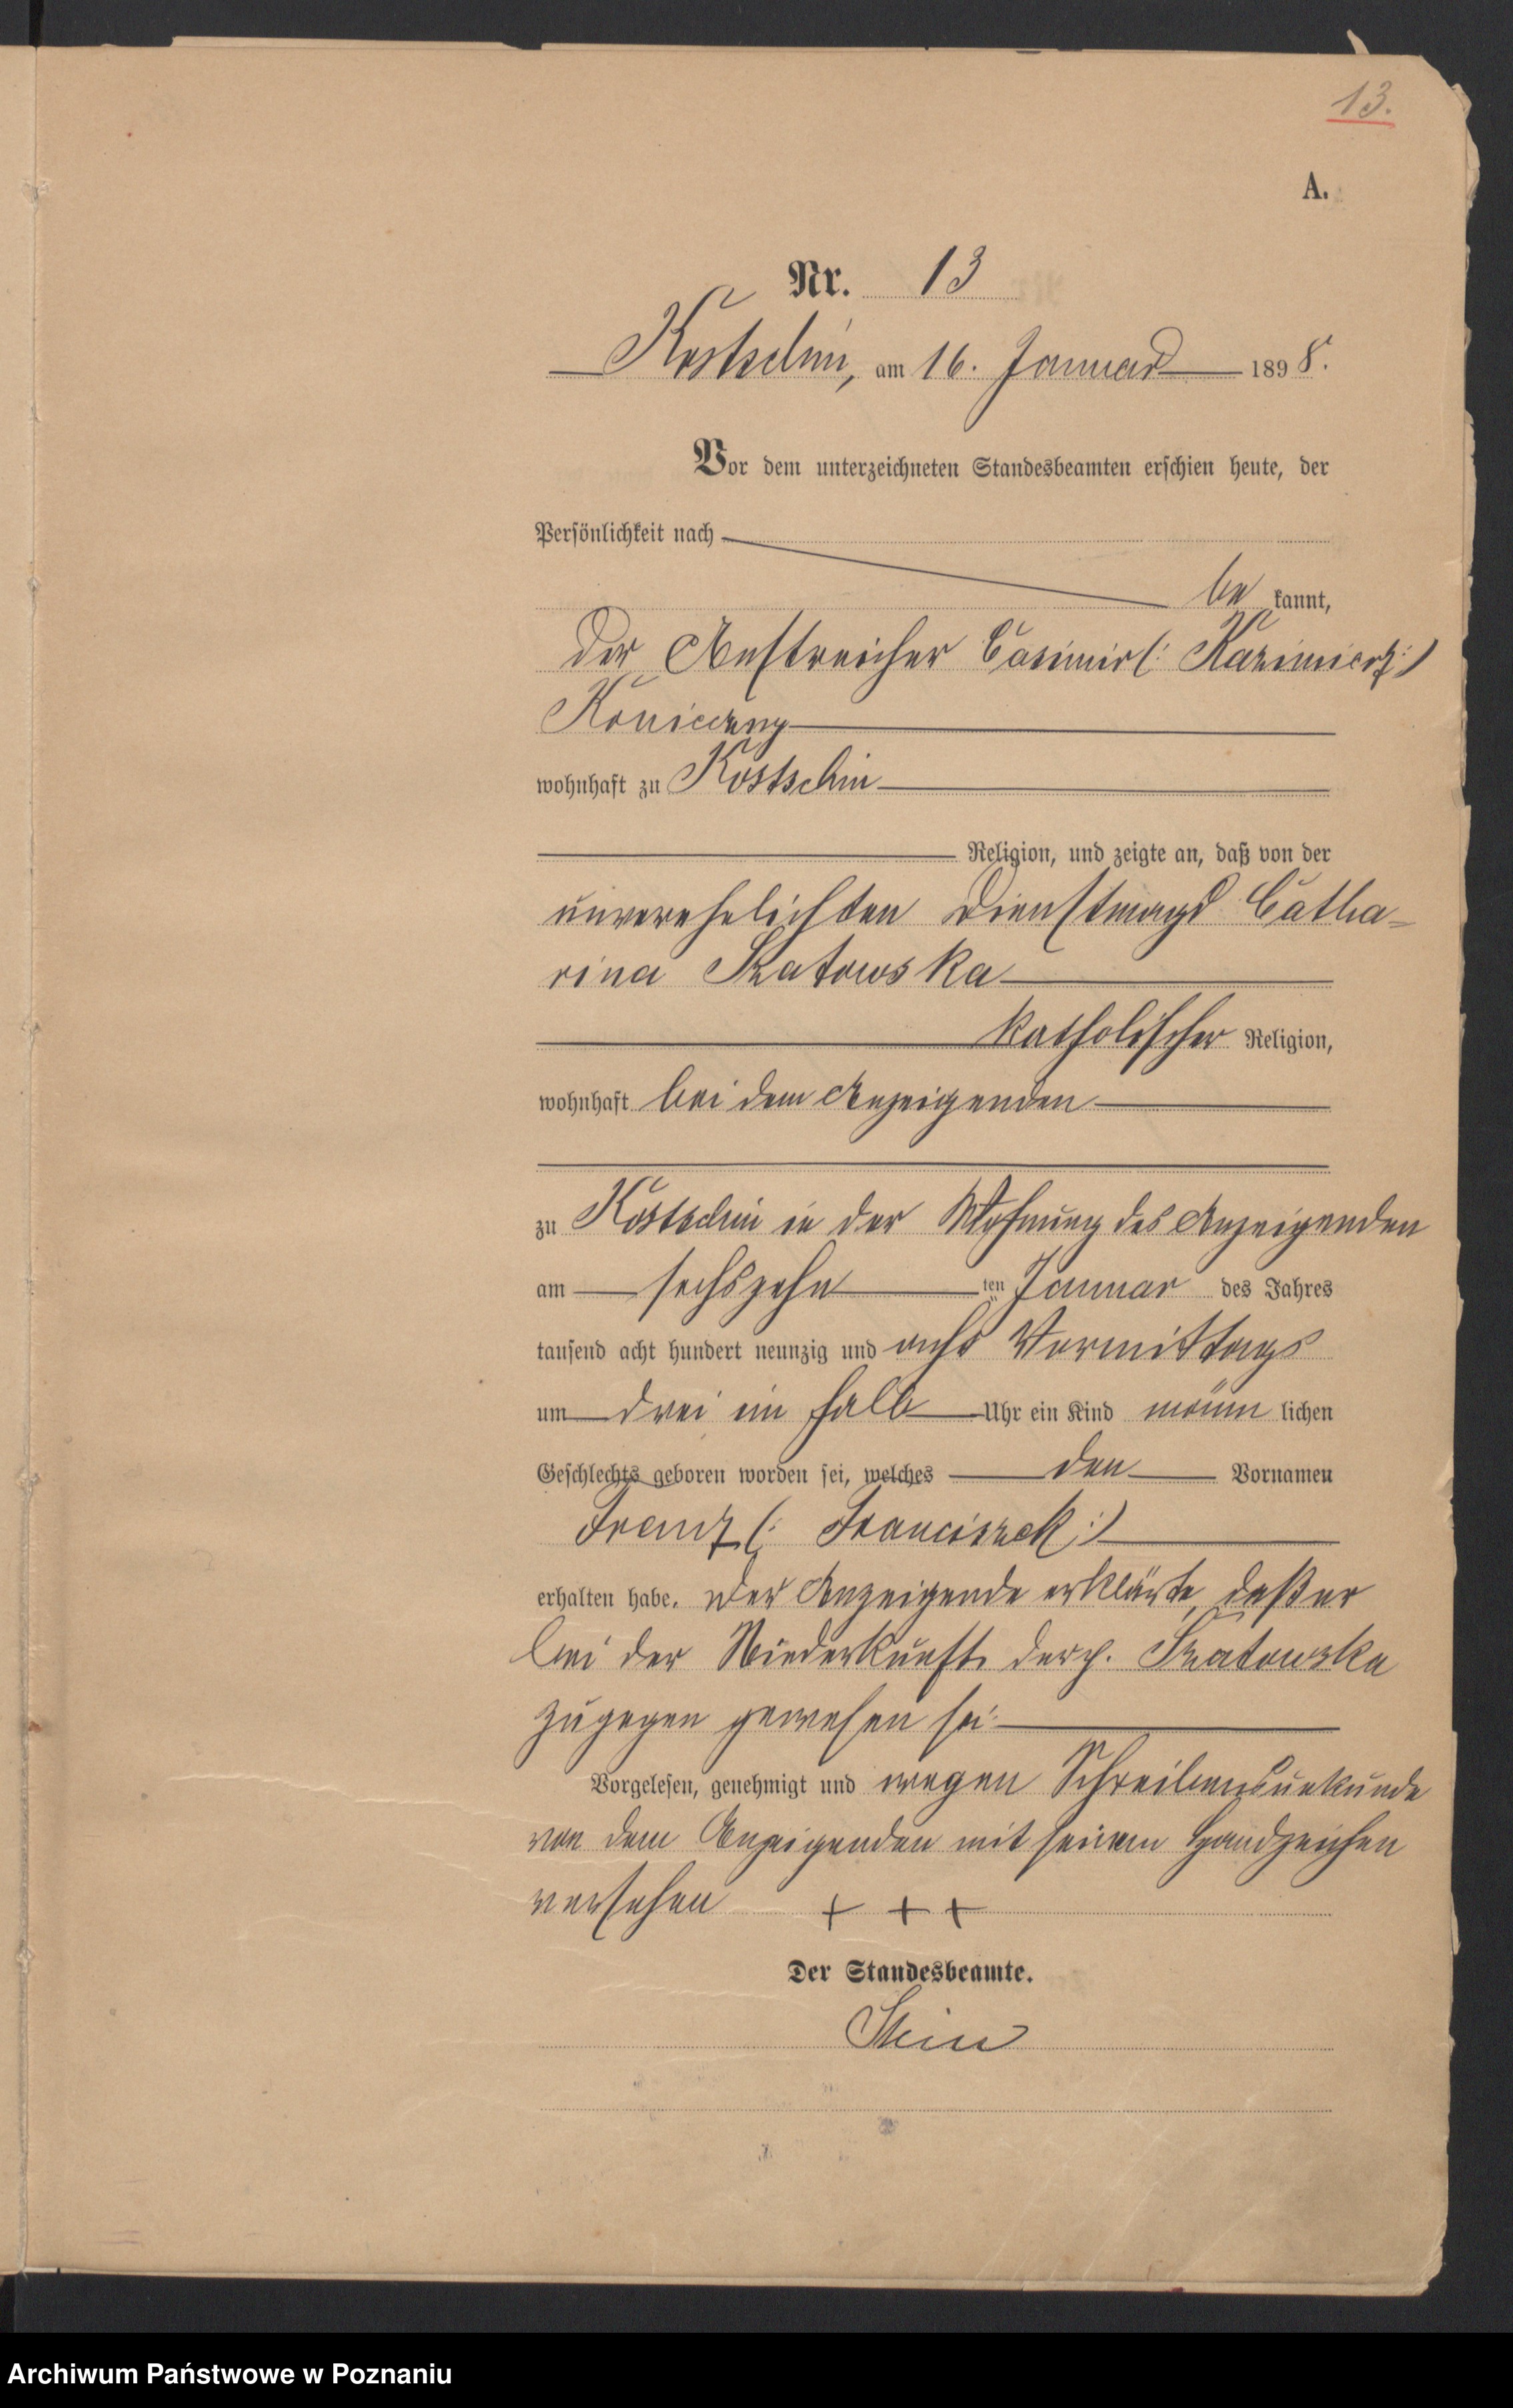 13.
A.
Nr. 13
Kostschin, am 16. Januar 1898.
Vor dem unterzeichneten Standesbeamten erschien heute, der
Persönlichkeit nach
be kannt,
der Anstreicher Casimir (: Kazimierz :)
Konieczny
wohnhaft zu Kostschin
Religion, und zeigte an, daß von der
unverehelichten Dienstmagd Catha-
rina Szatowska
katholischer Religion,
wohnhaft bei dem Anzeigenden
zu Kostschin in der Wohnung des Anzeigenden
am sechszehn ten Januar des Jahres
tausend acht hundert neunzig und acht Vormittags
um drei ein halb Uhr ein Kind männ lichen
Geschlechts geboren worden sei, welches den Vornamen
Franz (: Franciszek :)
erhalten habe. Der Anzeigende erklärte, daß er
bei der Niederkunft der p. Szatowska
zugegen gewesen sei.
Vorgelesen, genehmigt und wegen Schreibensunkunde
von dem Anzeigenden mit seinem Handzeichen
versehen + + +
Der Standesbeamte.
Stein
Archiwum Państwowe w Poznaniu